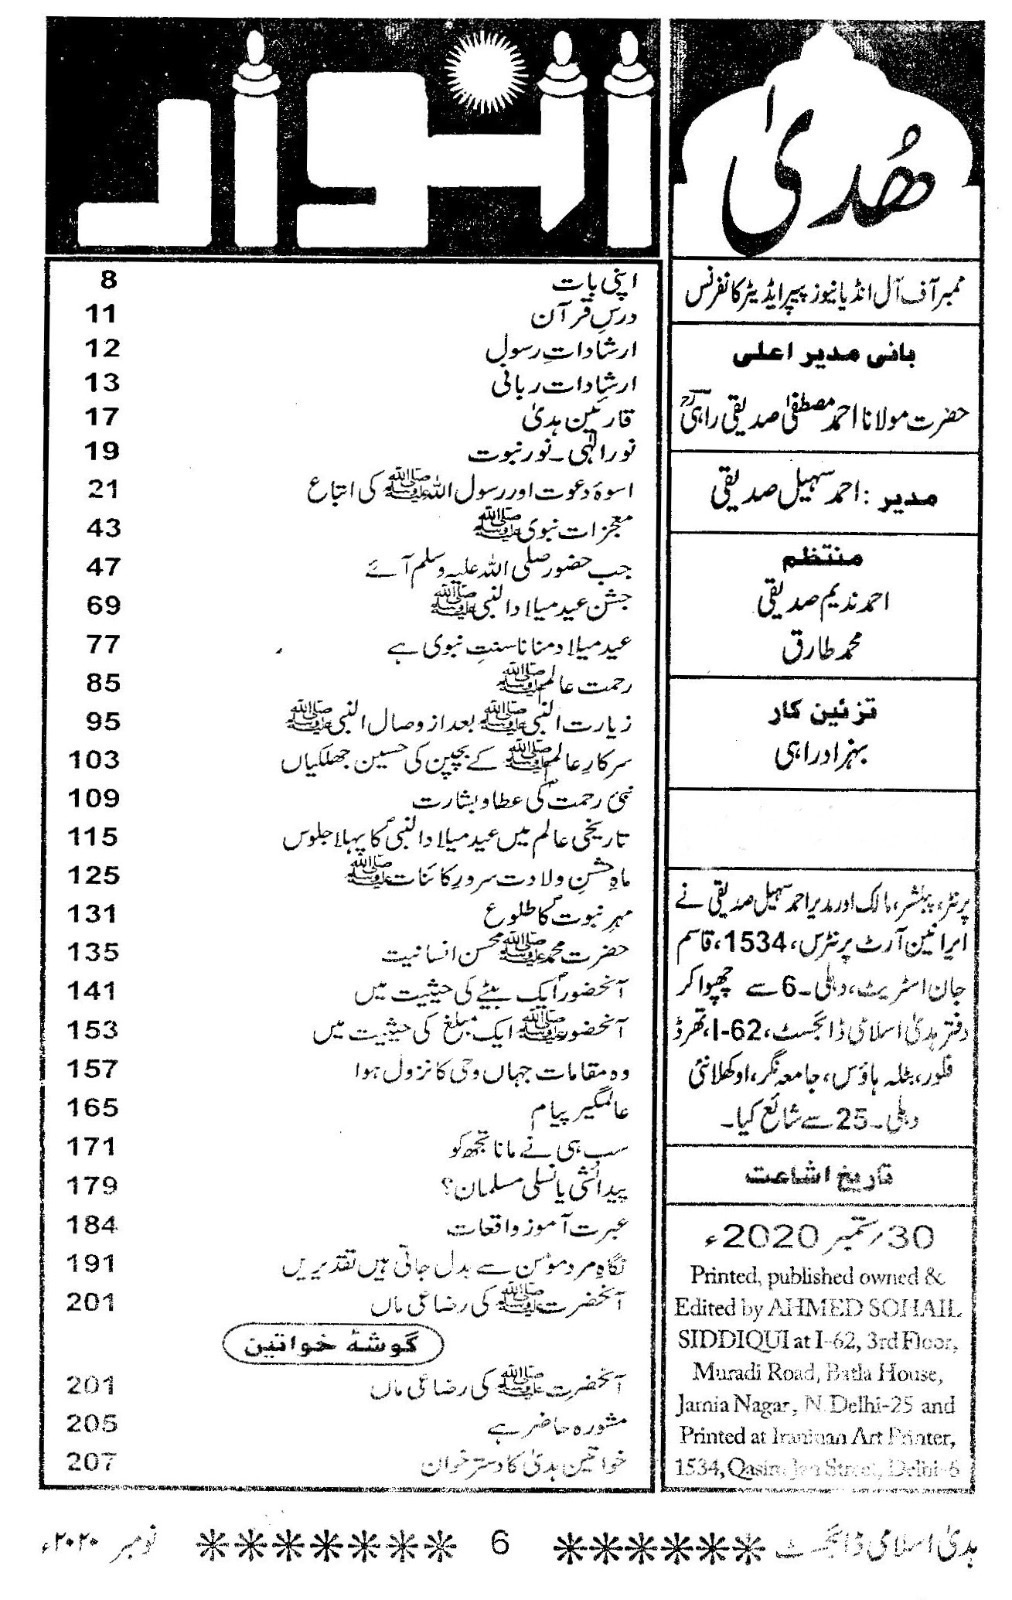 ھُدیٰ
انوار
ممبر آف آل انڈیا نیوز پیپر ایڈیٹر کانفرنس
بانی مدیر اعلی
حضرت مولانا احمد مصطفیٰ صدیقی راہیؒ
مدیر : احمد سہیل صدیقی
منتظم
احمد ندیم صدیقی
محمد طارق
تزئین کار
بہزاد راہی
پرنٹر، پبلشر، مالک اور مدیر احمد سہیل صدیقی نے
ایرانین آرٹ پرنٹرس، 1534، قاسم
جان اسٹریٹ، دہلی۔6 سے چھپوا کر
دفتر ہدیٰ اسلامی ڈائجسٹ، I-62، تھرڈ
فلور، بٹلہ ہاؤس، جامعہ نگر، اوکھلا نئی
دہلی۔25 سے شائع کیا۔
تاریخ اشاعت
30/ستمبر 2020ء
Printed, published owned &
Edited by AHMED SOHAIL
SIDDIQUI at I-62, 3rd Floor,
Muradi Road, Batla House,
Jamia Nagar, N. Delhi-25 and
Printed at Iraninan Art Printer,
1534, Qasim Jan Street, Delhi-6
اپنی بات 8
درسِ قرآن 11
ارشاداتِ رسول 12
ارشادات ربانی 13
قارئین ہدیٰ 17
نور الٰہی۔ نور نبوت 19
اسوۂ دعوت اور رسول اللہ ﷺ کی اتباع 21
معجزات نبوی ﷺ 43
جب حضور صلی اللہ علیہ وسلم آئے 47
جشن عید میلاد النبی ﷺ 69
عید میلاد منانا سنتِ نبوی ہے 77
رحمت عالم ﷺ 85
زیارت النبی ﷺ بعد از وصال النبی ﷺ 95
سرکارِ عالم ﷺ کے بچپن کی حسین جھلکیاں 103
نبیٔ رحمتؐ کی عطا و بشارت 109
تاریخی عالم میں عید میلاد النبیؐ کا پہلا جلوس 115
ماہِ جشنِ ولادت سرورِ کائنات ﷺ 125
مہر نبوتؐ کا طلوع 131
حضرت محمد ﷺ محسن انسانیت 135
آنحضورؐ ایک بیٹے کی حیثیت میں 141
آنحضور ﷺ ایک مبلغ کی حیثیت میں 153
وہ مقامات جہاں وحی کا نزول ہوا 157
عالمگیر پیام 165
سب ہی نے مانا تجھ کو 171
پیدائشی یا نسلی مسلمان؟ 179
عبرت آموز واقعات 184
نگاہِ مرد مؤمن سے بدل جاتی ہیں تقدیریں 191
آنحضرت ﷺ کی رضاعی ماں 201
گوشۂ خواتین
آنحضرت ﷺ کی رضاعی ماں 201
مشورہ حاضر ہے 205
خواتین ہدیٰ کا دسترخوان 207
ہدیٰ اسلامی ڈائجسٹ 6 نومبر ۲۰۲۰ء